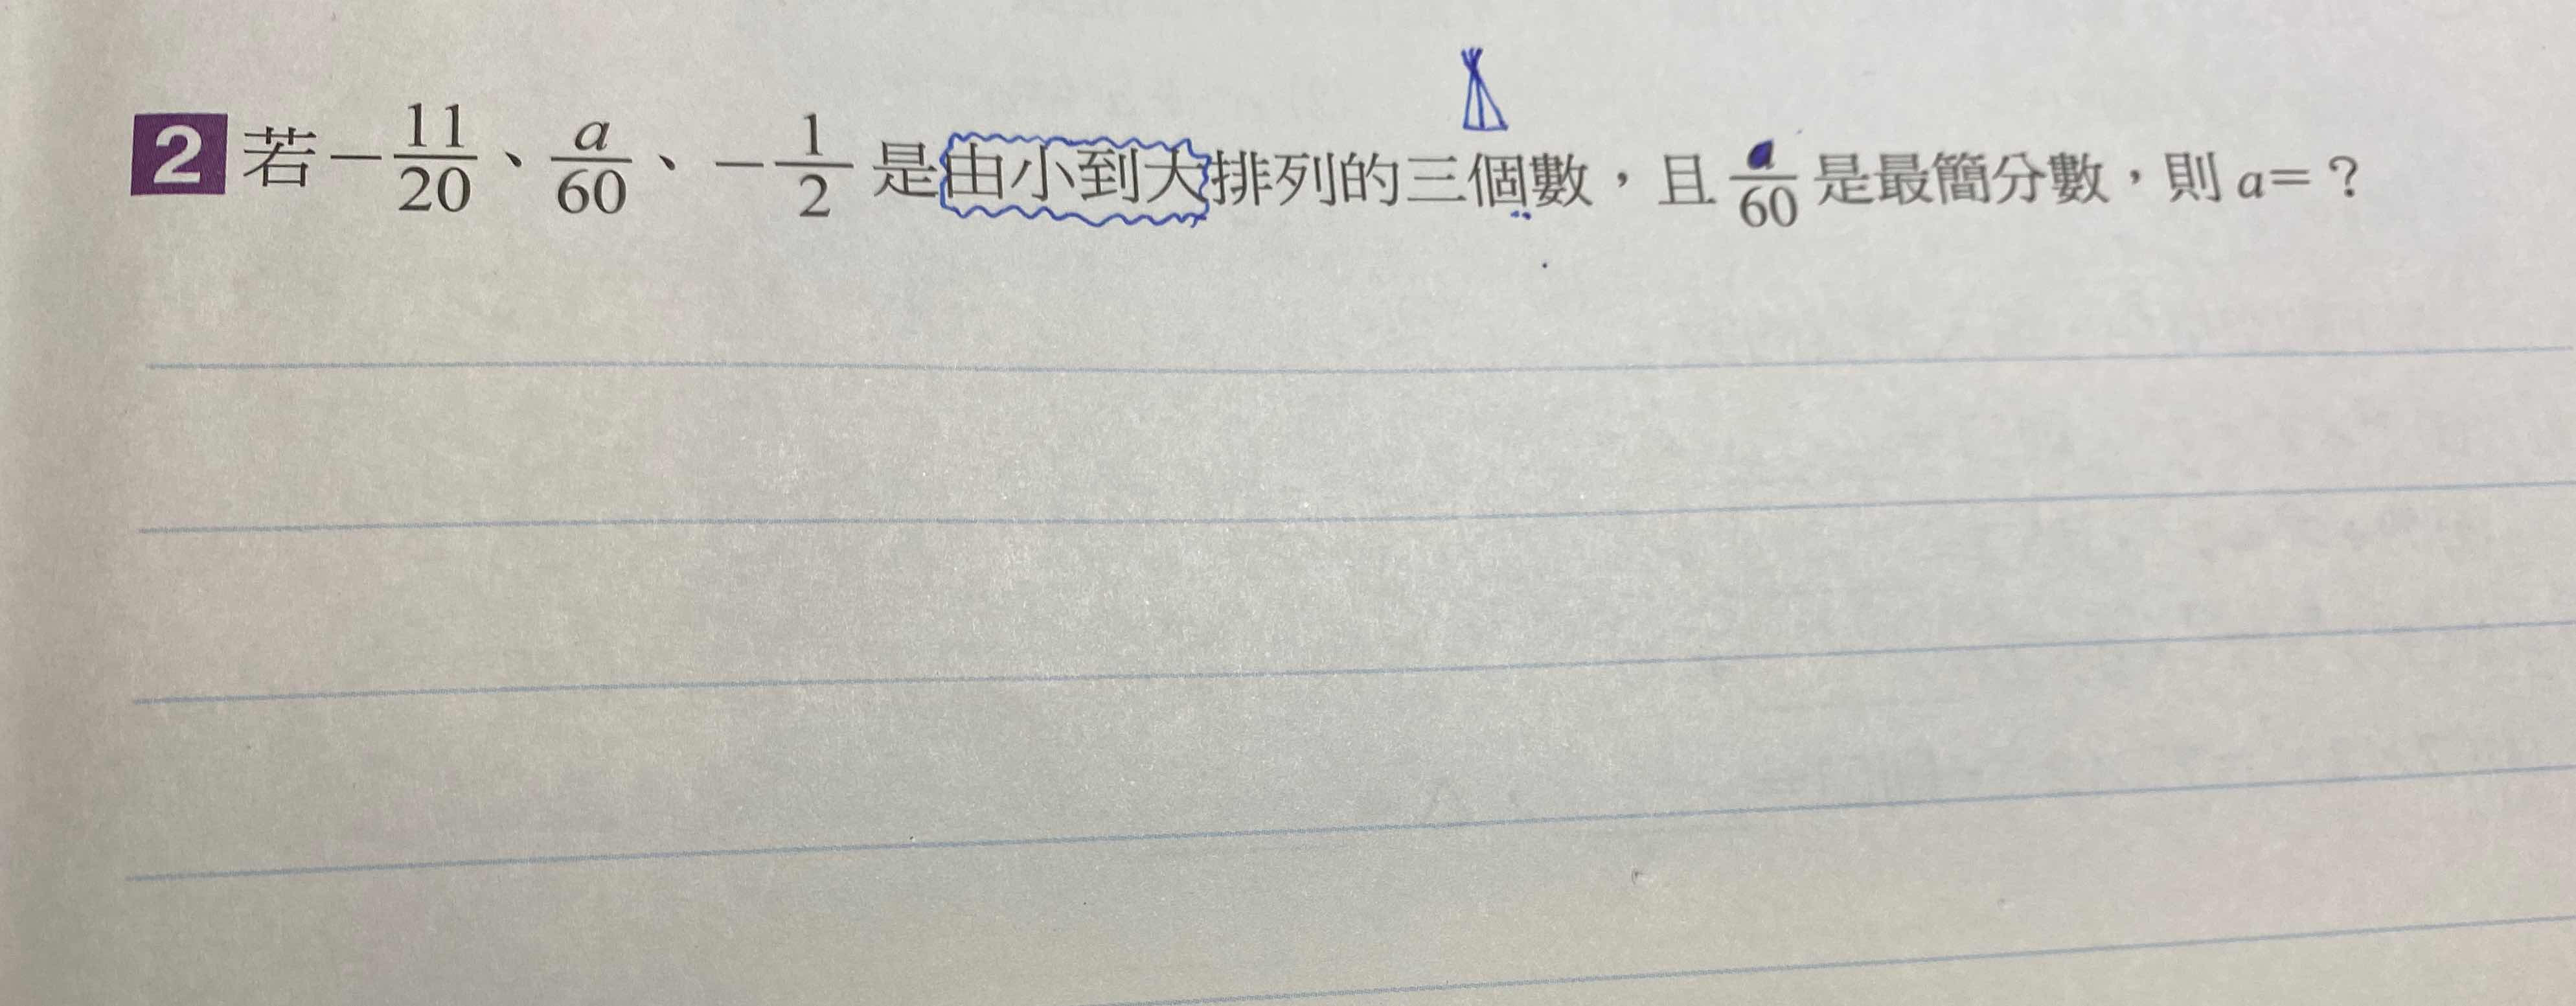 2 若 -11/20、a/60、-1/2 是由小到大排列的三個數，且 a/60 是最簡分數，則 a=？